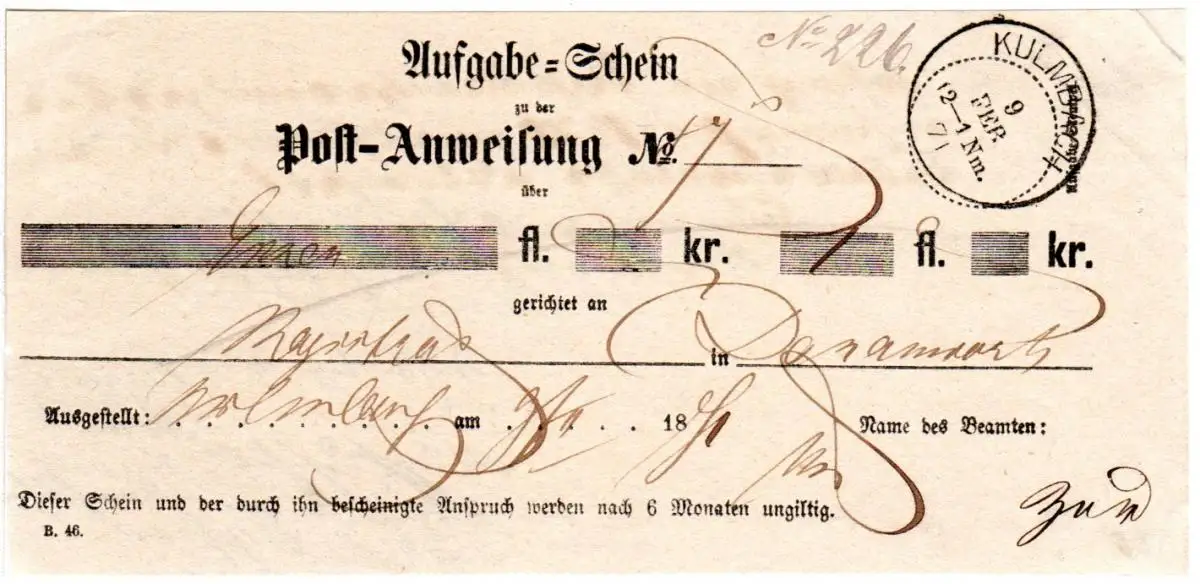 No 226.
Aufgabe=Schein
zu der
Post-Anweisung No.
über
fl. kr. fl. kr.
gerichtet an
Magistrat in Donauwörth
Ausgestellt: Kulmbach am 9/2. 1871
Name des Beamten:
Dieser Schein und der durch ihn bescheinigte Anspruch werden nach 6 Monaten ungiltig.
B. 46.
KULMBACH
9
FEB
12—1 Nm.
71